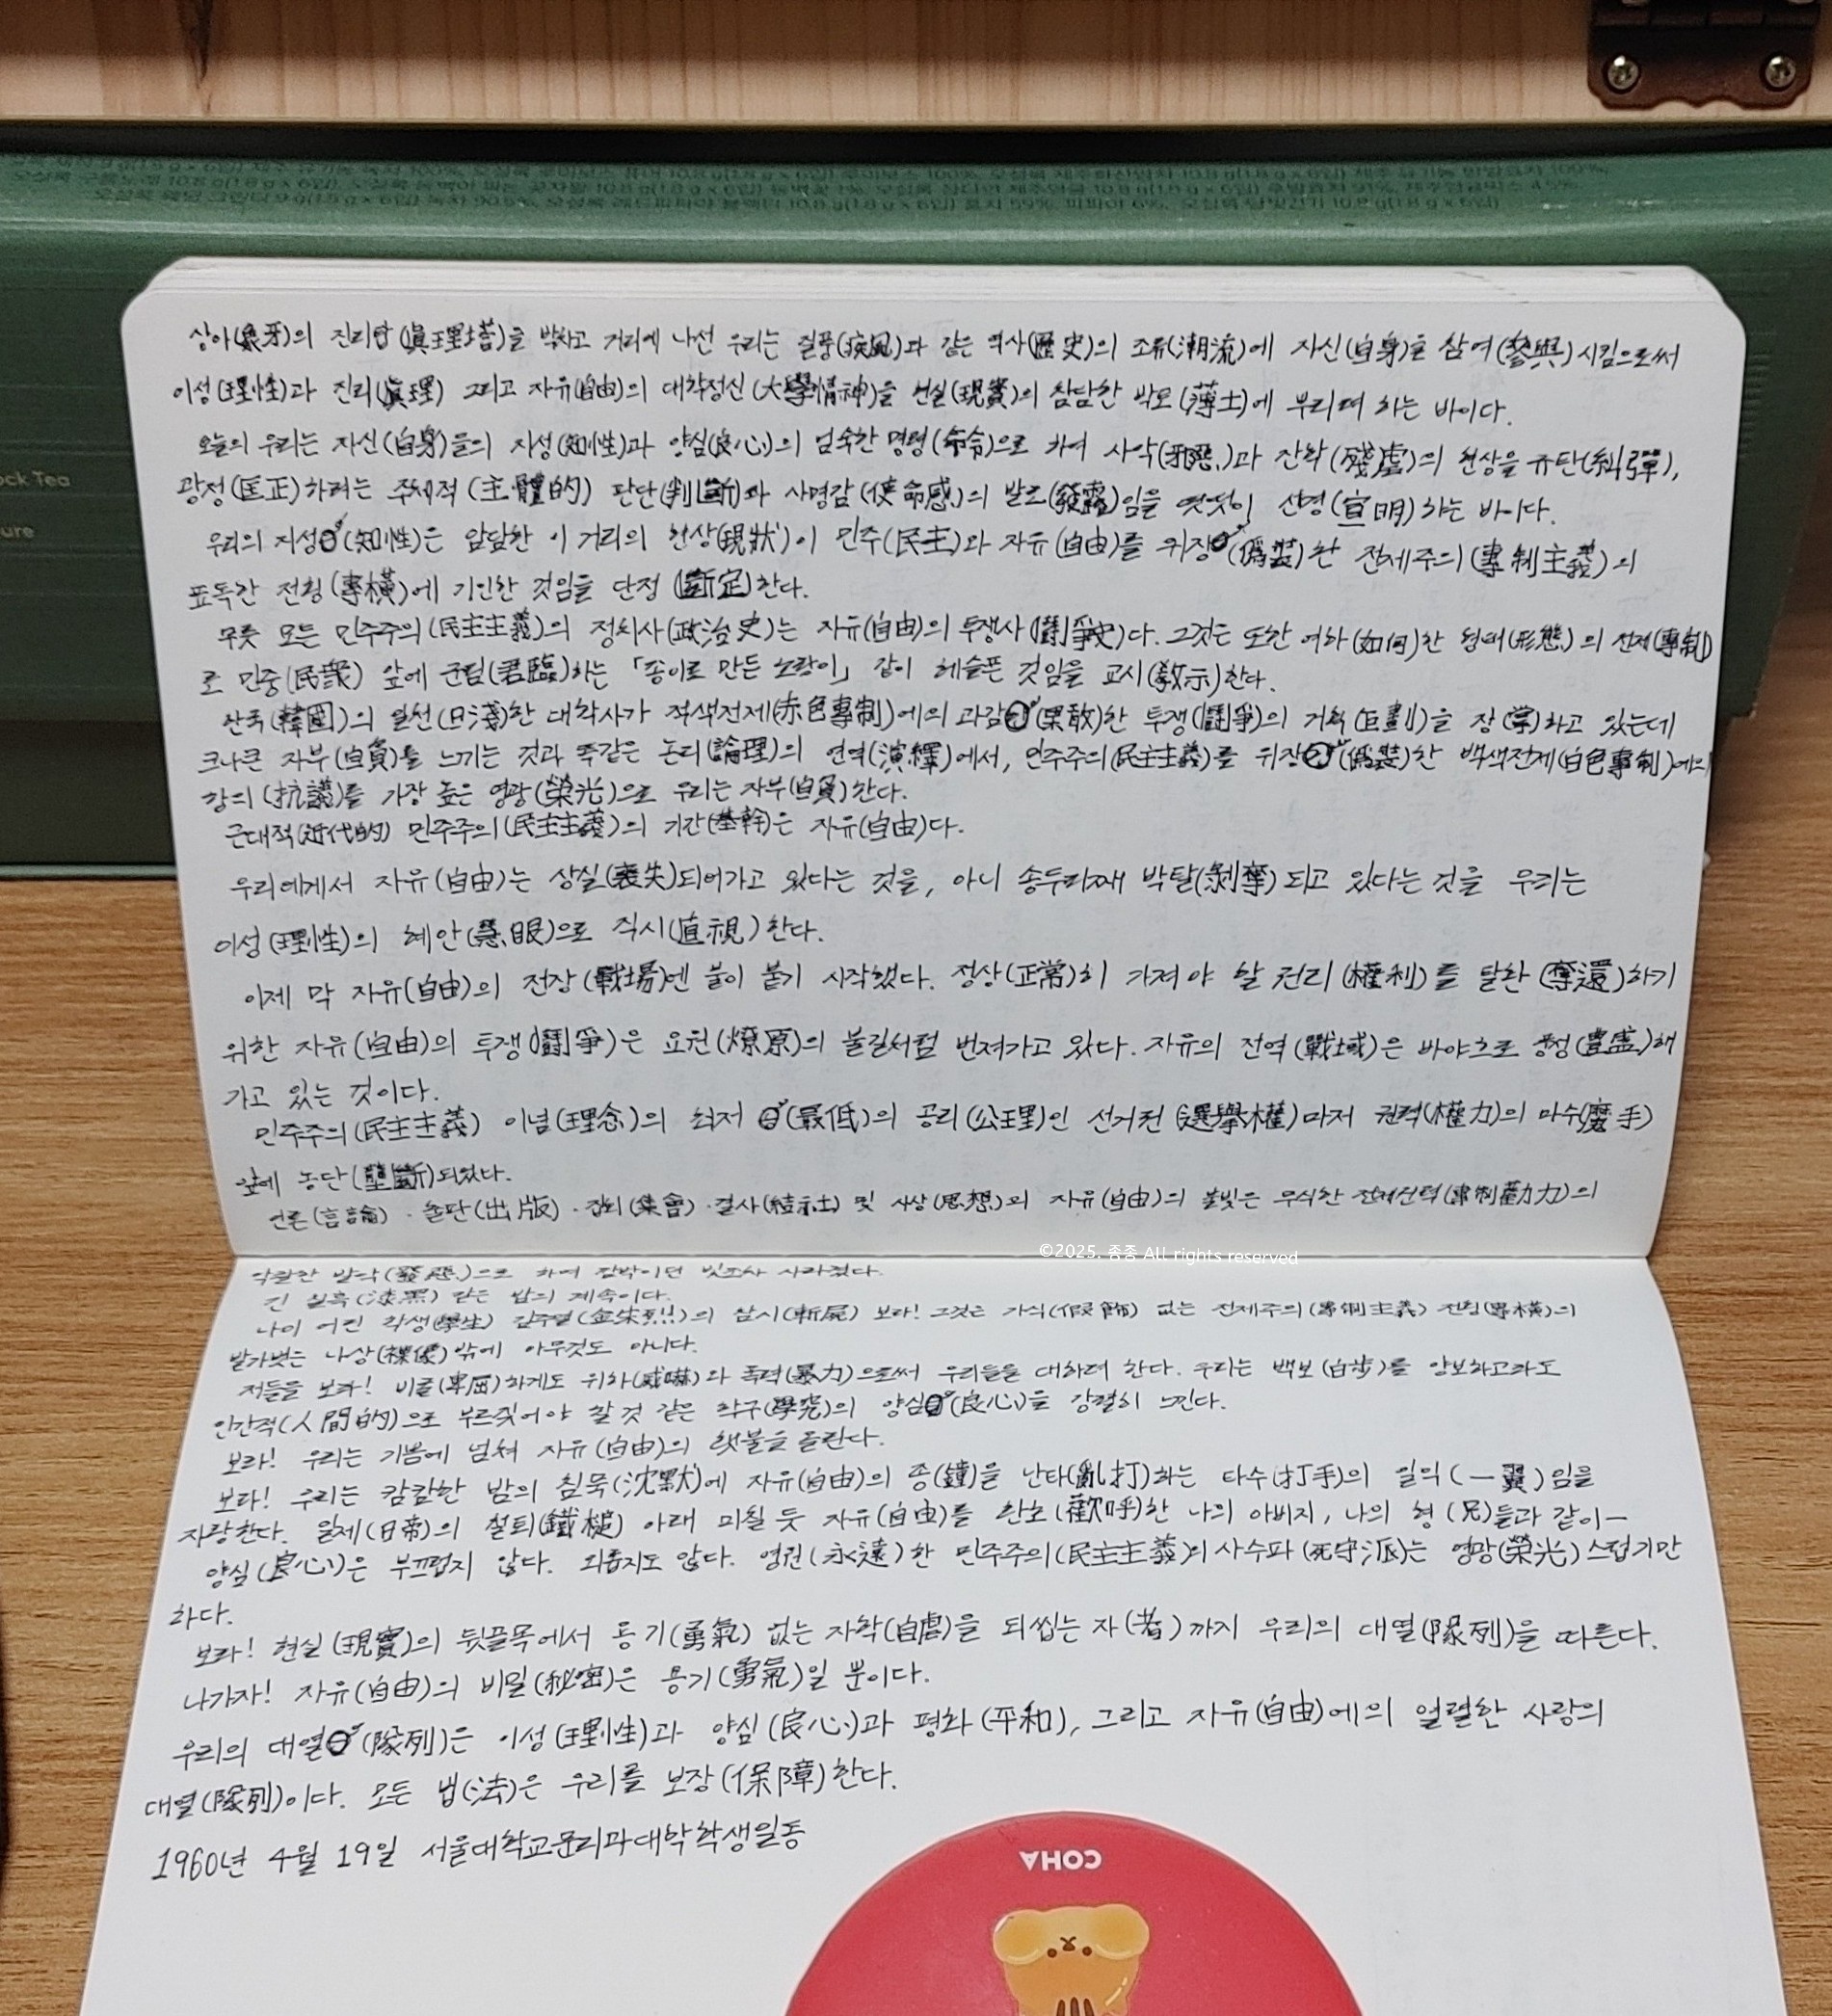 상아(象牙)의 진리탑(眞理塔)을 박차고 거리에 나선 우리는 질풍(疾風)과 같은 역사(歷史)의 조류(潮流)에 자신(自身)을 참여(參與)시킴으로써
이성(理性)과 진리(眞理) 그리고 자유(自由)의 대학정신(大學情神)을 현실(現實)의 참담한 박토(薄土)에 뿌리려 하는 바이다.
오늘의 우리는 자신(自身)들의 지성(知性)과 양심(良心)의 엄숙한 명령(命令)으로 하여 사악(邪惡)과 잔학(殘虐)의 현상을 규탄(糾彈),
광정(匡正)하려는 주체적(主體的) 판단(判斷)과 사명감(使命感)의 발로(發露)임을 떳떳이 선명(宣明)하는 바이다.
우리의 지성(知性)은 암담한 이 거리의 현상(現狀)이 민주(民主)와 자유(自由)를 위장(僞裝)한 전제주의(專制主義)의
표독한 전횡(專橫)에 기인한 것임을 단정(斷定)한다.
무릇 모든 민주주의(民主主義)의 정치사(政治史)는 자유(自由)의 투쟁사(鬪爭史)다. 그것은 또한 여하(如何)한 형태(形態)의 전제(專制)
로 민중(民衆) 앞에 군림(君臨)하는 「종이로 만든 호랑이」 같이 헤슬픈 것임을 교시(敎示)한다.
한국(韓國)의 일천(日淺)한 대학사가 적색전제(赤色專制)에의 과감(果敢)한 투쟁(鬪爭)의 거획(巨劃)을 장(掌)하고 있는데
크나큰 자부(自負)를 느끼는 것과 똑같은 논리(論理)의 연역(演繹)에서, 민주주의(民主主義)를 위장(僞裝)한 백색전제(白色專制)에의
항의(抗議)를 가장 높은 영광(榮光)으로 우리는 자부(自負)한다.
근대적(近代的) 민주주의(民主主義)의 기간(基幹)은 자유(自由)다.
우리에게서 자유(自由)는 상실(喪失)되어가고 있다는 것을, 아니 송두리째 박탈(剝奪)되고 있다는 것을 우리는
이성(理性)의 혜안(慧眼)으로 직시(直視)한다.
이제 막 자유(自由)의 전장(戰場)엔 불이 붙기 시작했다. 정상(正常)히 가져야 할 권리(權利)를 탈환(奪還)하기
위한 자유(自由)의 투쟁(鬪爭)은 요원(燎原)의 불길처럼 번져가고 있다. 자유의 전역(戰域)은 바야흐로 풍성(豊盛)해
가고 있는 것이다.
민주주의(民主主義) 이념(理念)의 최저(最低)의 공리(公理)인 선거권(選擧權)마저 권력(權力)의 마수(魔手)
앞에 농단(壟斷)되었다.
언론(言論)·출판(出版)·집회(集會)·결사(結社) 및 사상(思想)의 자유(自由)의 불빛은 무식한 전제권력(專制勸力)의
악랄한 발악(發惡)으로 하여 깜박이던 빛조차 사라졌다.
긴 칠흑(漆黑) 같은 밤의 계속이다.
나이 어린 학생(學生) 김주열(金朱烈)의 참시(斬屍) 보라! 그것은 가식(假飾) 없는 전제주의(專制主義) 전횡(專橫)의
발가벗은 나상(裸像)밖에 아무것도 아니다.
저들을 보라! 비굴(卑屈)하게도 위하(威嚇)와 폭력(暴力)으로써 우리들을 대하려 한다. 우리는 백보(百步)를 양보하고라도
인간적(人間的)으로 부르짖어야 할 것 같은 학구(學究)의 양심(良心)을 강렬히 느낀다.
보라! 우리는 기쁨에 넘쳐 자유(自由)의 횃불을 올린다.
보라! 우리는 캄캄한 밤의 침묵(沈默)에 자유(自由)의 종(鐘)을 난타(亂打)하는 타수(打手)의 일익(一翼)임을
자랑한다. 일제(日帝)의 철퇴(鐵槌) 아래 미칠 듯 자유(自由)를 환호(歡呼)한 나의 아버지, 나의 형(兄)들과 같이—
양심(良心)은 부끄럽지 않다. 외롭지도 않다. 영원(永遠)한 민주주의(民主主義)의 사수파(死守派)는 영광(榮光)스럽기만
하다.
보라! 현실(現實)의 뒷골목에서 용기(勇氣) 없는 자학(自虐)을 되씹는 자(者)까지 우리의 대열(隊列)을 따른다.
나가자! 자유(自由)의 비밀(秘密)은 용기(勇氣)일 뿐이다.
우리의 대열(隊列)은 이성(理性)과 양심(良心)과 평화(平和), 그리고 자유(自由)에의 열렬한 사랑의
대열(隊列)이다. 모든 법(法)은 우리를 보장(保障)한다.
1960년 4월 19일 서울대학교문리과대학학생일동
©2025. 종종 All rights reserved
COHA
ock Tea
ure